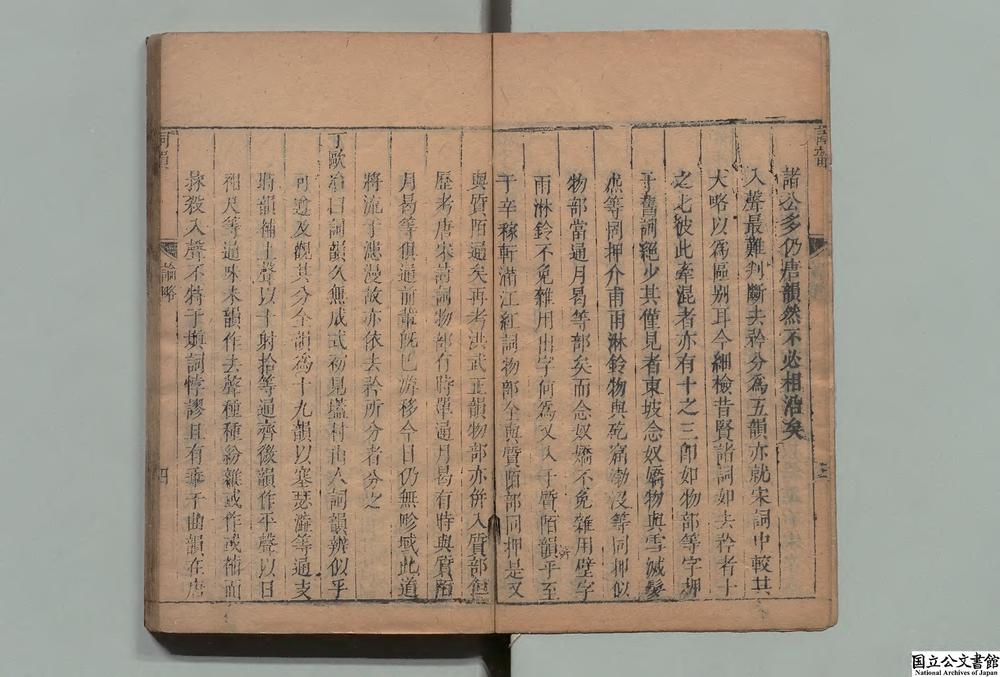 諸公多仍唐韻然不必相沿矣
入聲最難判斷去矜分為五韻亦就宋詞中較其
大略以為區別耳今細檢昔賢諸詞如去矜者十
之七彼此牽混者亦有十之三即如物部等字押
于舊詞絕少其僅見者東坡念奴嬌物與雪滅髮
等同押介甫雨淋鈴物與窟渤沒等同押似
物部當通月曷等部矣而念奴嬌不免雜用壁字
雨淋鈴不免雜用出字何為又入于質陌韻乎至
于辛稼軒滿江紅詞物部全與質陌部同押是又
與質陌通矣再考洪武正韻物部亦併入質部
歷考唐宋詩詞物部有時單通月曷有時與質陌
月曷等俱通前輩既已游移今日仍無畛域此道
將流于濫漫故亦依去矜所分者分之
丁歌冶曰詞韻久無成式初見村山人詞韻辨似乎
可遵及觀其分全韻為十九韻以塞瑟等通支
將韻補上聲以十射拾等通齊後韻作平聲以日
尺等通昧未韻作去聲種種紛雜或作或補而
抹殺入聲不特于塡詞悖謬且有乖于曲韻在唐
詞韻
論略
四
国立公文書館
National Archives of Japan